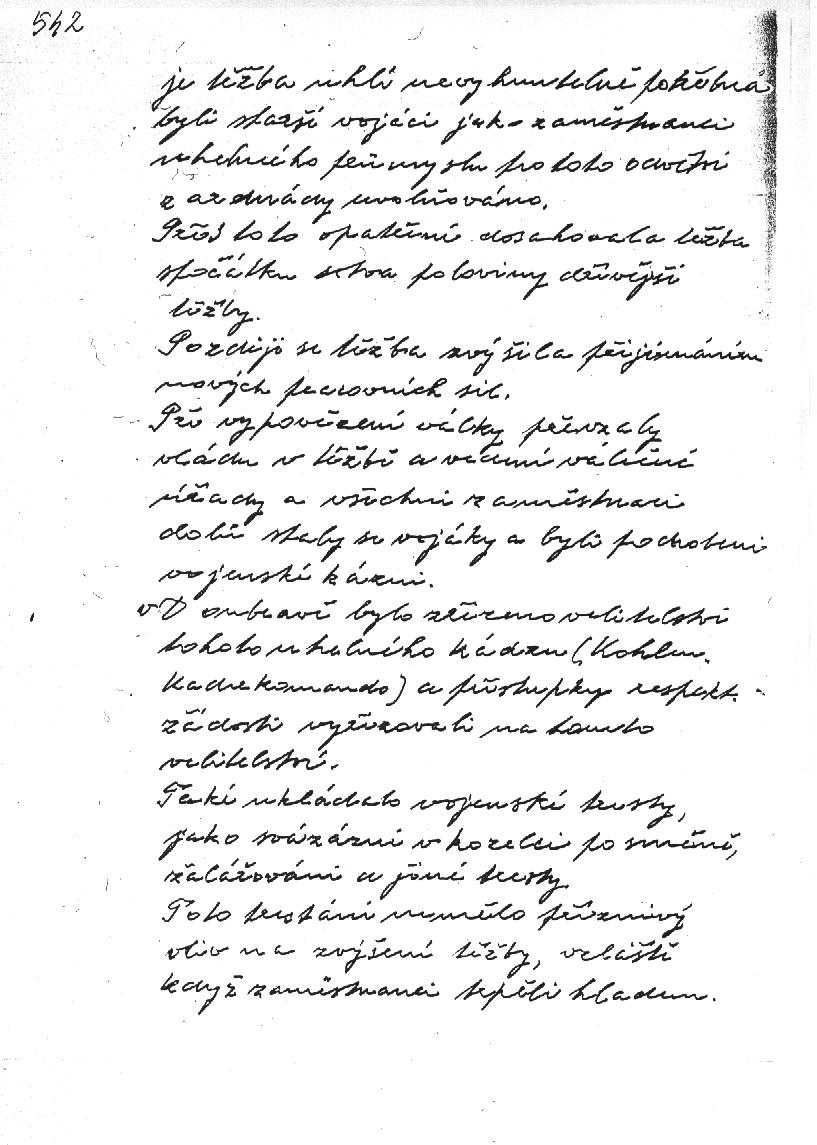 542
je těžba uhlí nevyhnutelně potřebná
byli starší vojáci jak-zaměstnanci
uhelného průmyslu pro toto odvětví
z ardmády uvolňováno.
Přes toto opatření dosahovala těžba
spočátku sotva poloviny dřívější
těžby.
Pozdiji se těžba zvýšila přijímáním
nových pracovních sil.
Při vypovězení války převzaly
vládu v těžbě a vedení válečné
úřady a všichni zaměstnaci
dolů staly se vojáky a byli podrobeni
vojenské kázni.
v Doubravě bylo zřízeno velitelství
tohoto uhelného kádru (Kohlen.
Kaderkomando) a přestupky respekt.
žádosti vyřizovali na tomto
velitelství.
Také ukládalo vojenské tresty,
jako svázání v kozelci po směně,
žalářování a jiné tresty
Toto trestání nemělo příznivý
vliv na zvýšení těžby, zvláště
když zaměstnanci trpěli hladem.